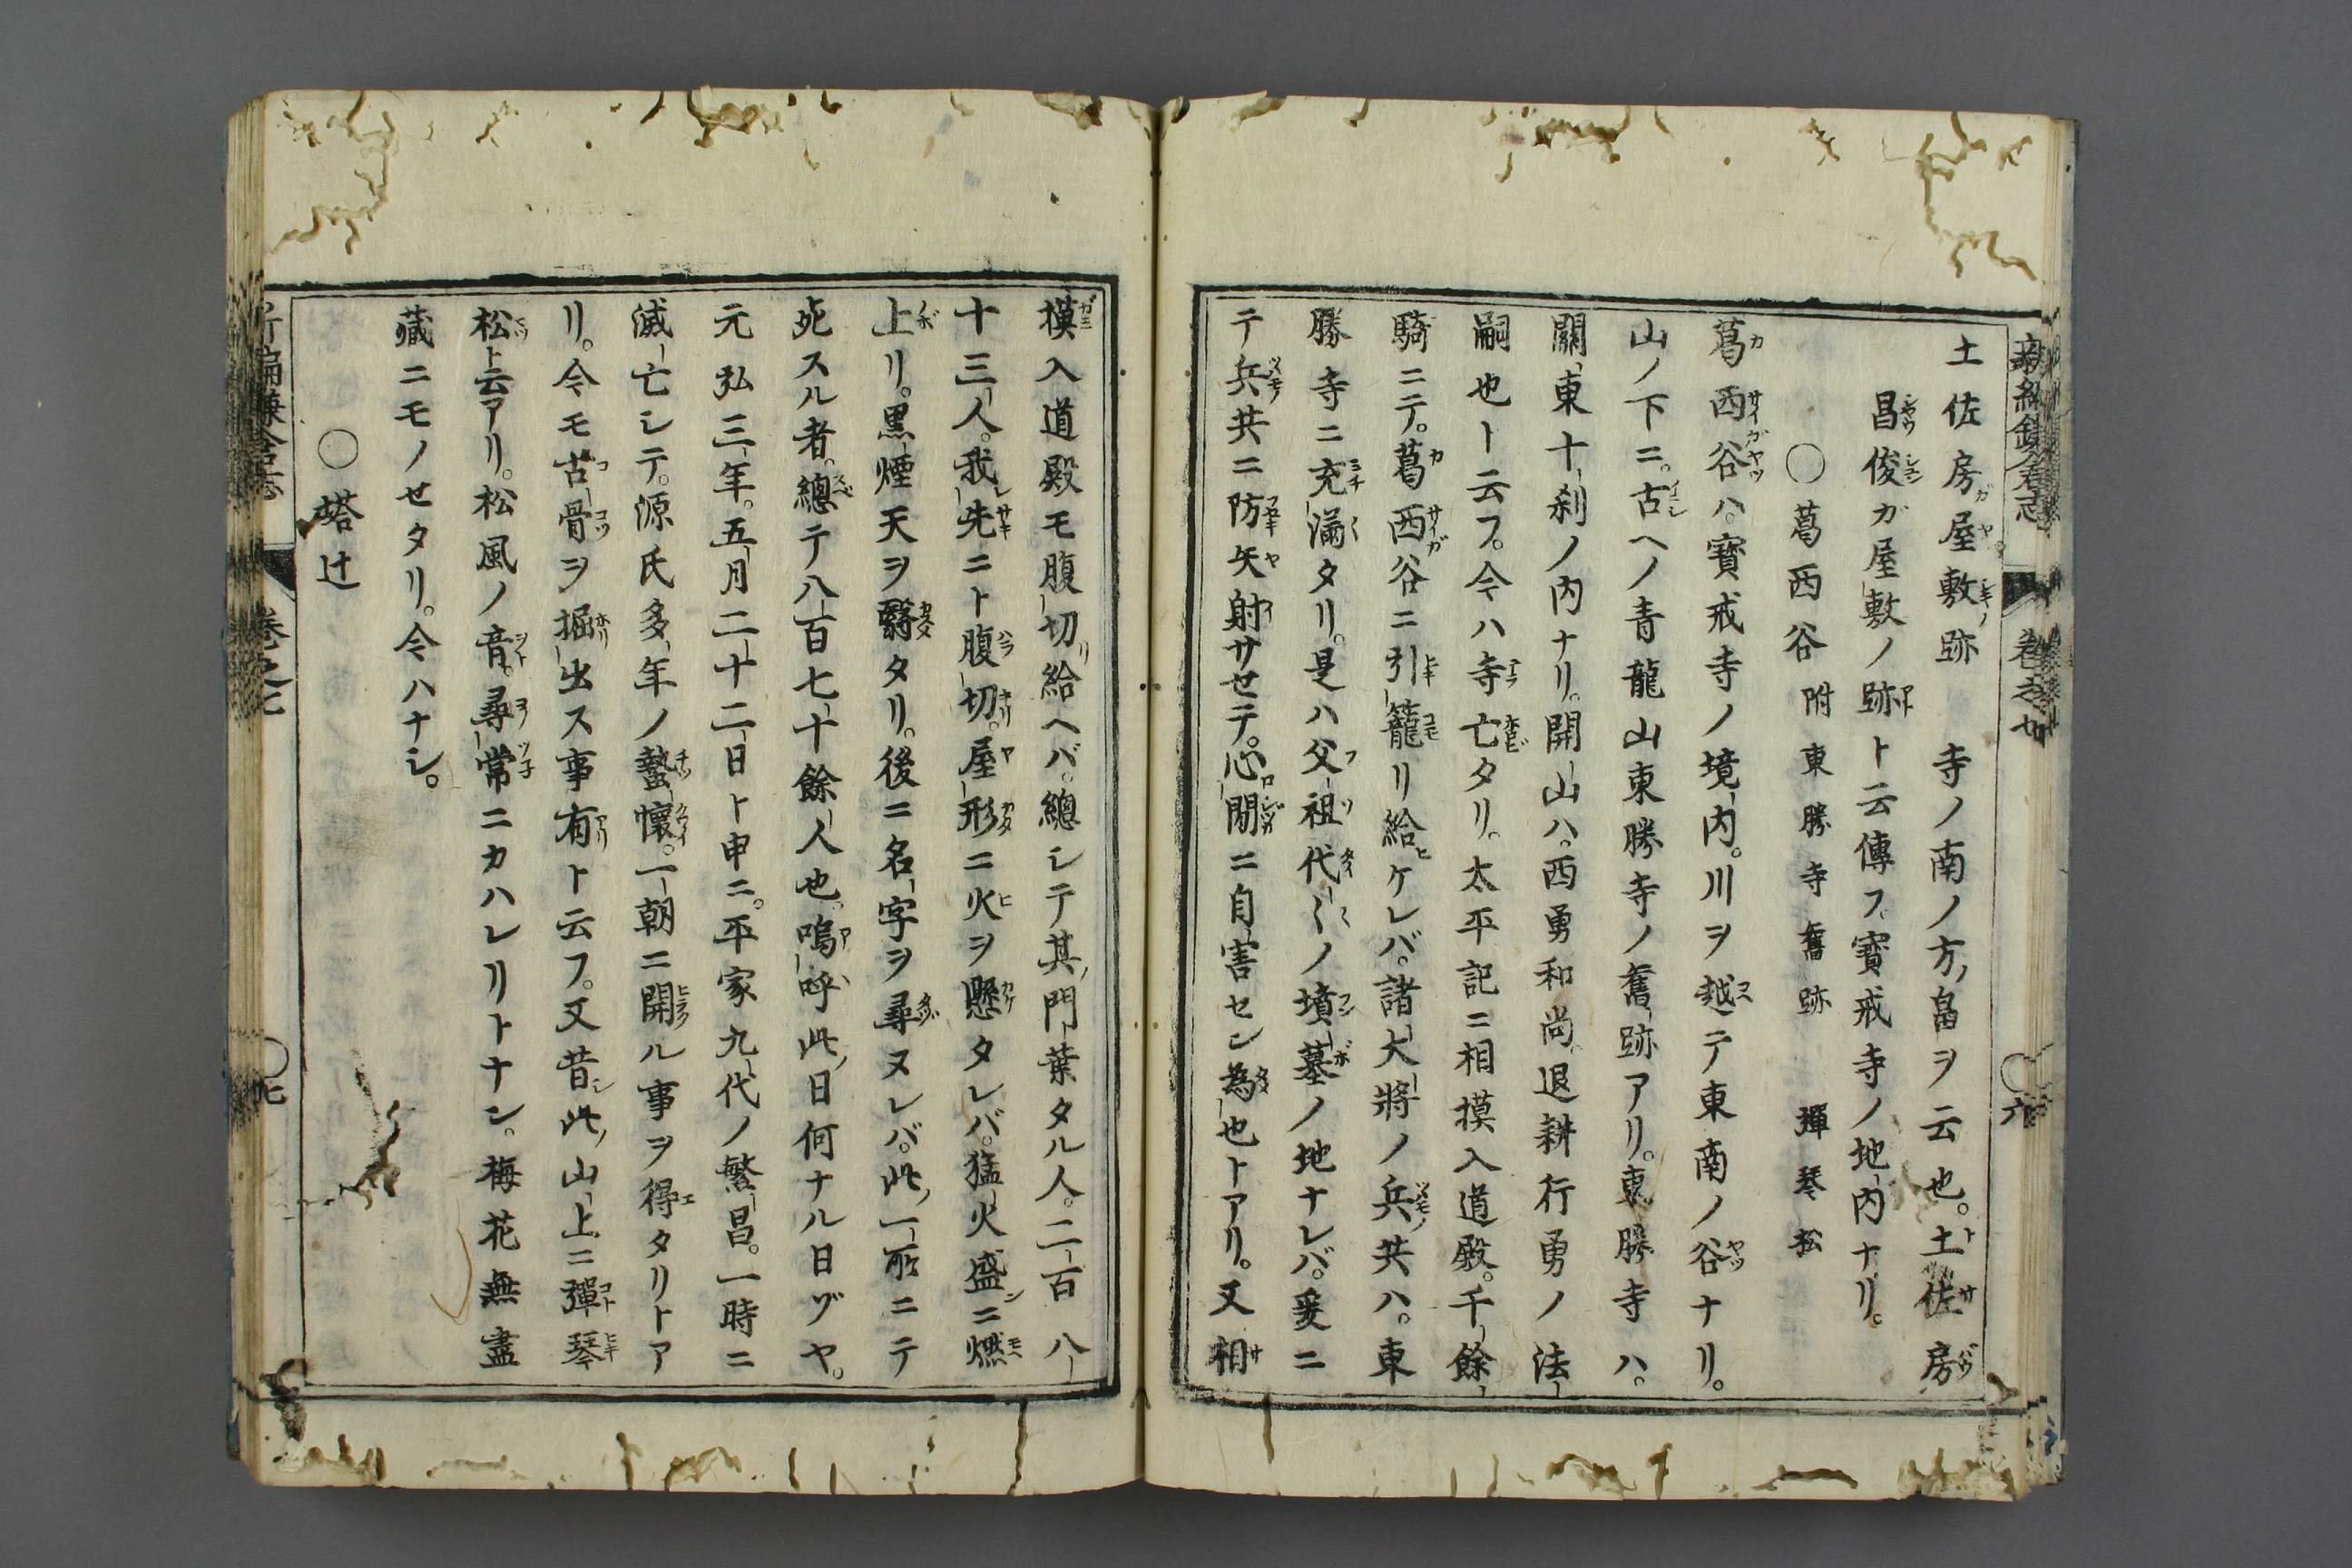 土佐房屋敷跡　寺ノ南ノ方ノ畠ヲ云也。土佐房
昌俊ガ屋敷ノ跡ト云傳フ。寶戒寺ノ地内ナリ。
○葛西谷　附東勝寺舊跡　彈琴松
葛西谷ハ。寶戒寺ノ境内。川ヲ越テ東南ノ谷ナリ。
山ノ下ニ。古ヘノ青龍山東勝寺ノ舊跡アリ。東勝寺ハ。
關東十刹ノ内ナリ。開山ハ。西勇和尚。退耕行勇ノ法
嗣也ト云フ。今ハ寺亡タリ。太平記ニ相摸入道殿。千餘
騎ニテ。葛西谷ニ引籠リ給ヒケレバ。諸大將ノ兵共ハ。東
勝寺ニ充滿タリ。是ハ父祖代〱ノ墳墓ノ地ナレバ。爰ニ
テ兵共ニ防矢射サセテ。心閒ニ自害セン爲也トアリ。又相
摸入道殿モ腹切給ヘバ。總シテ其ノ門葉タル人。二百八
十三人。我先ニト腹切。屋形ニ火ヲ懸タレバ。猛火盛ニ燃
上リ。黒煙天ヲ翳タリ。後ニ名字ヲ尋ヌレバ。此ノ一所ニテ
死スル者。總テ八百七十餘人也。嗚呼此ノ日何ナル日ゾヤ。
元弘三年。五月二十二日ト申ニ。平家九代ノ繁昌。一時ニ
滅亡シテ。源氏多年ノ蟄懷。一朝ニ開ル事ヲ得タリトア
リ。今モ古骨ヲ掘出ス事有ト云フ。又昔シ此ノ山上ニ彈琴
松ト云アリ。松風ノ音。尋常ニカハレリトナン。梅花無盡
藏ニモノせタリ。今ハナシ。
○塔辻